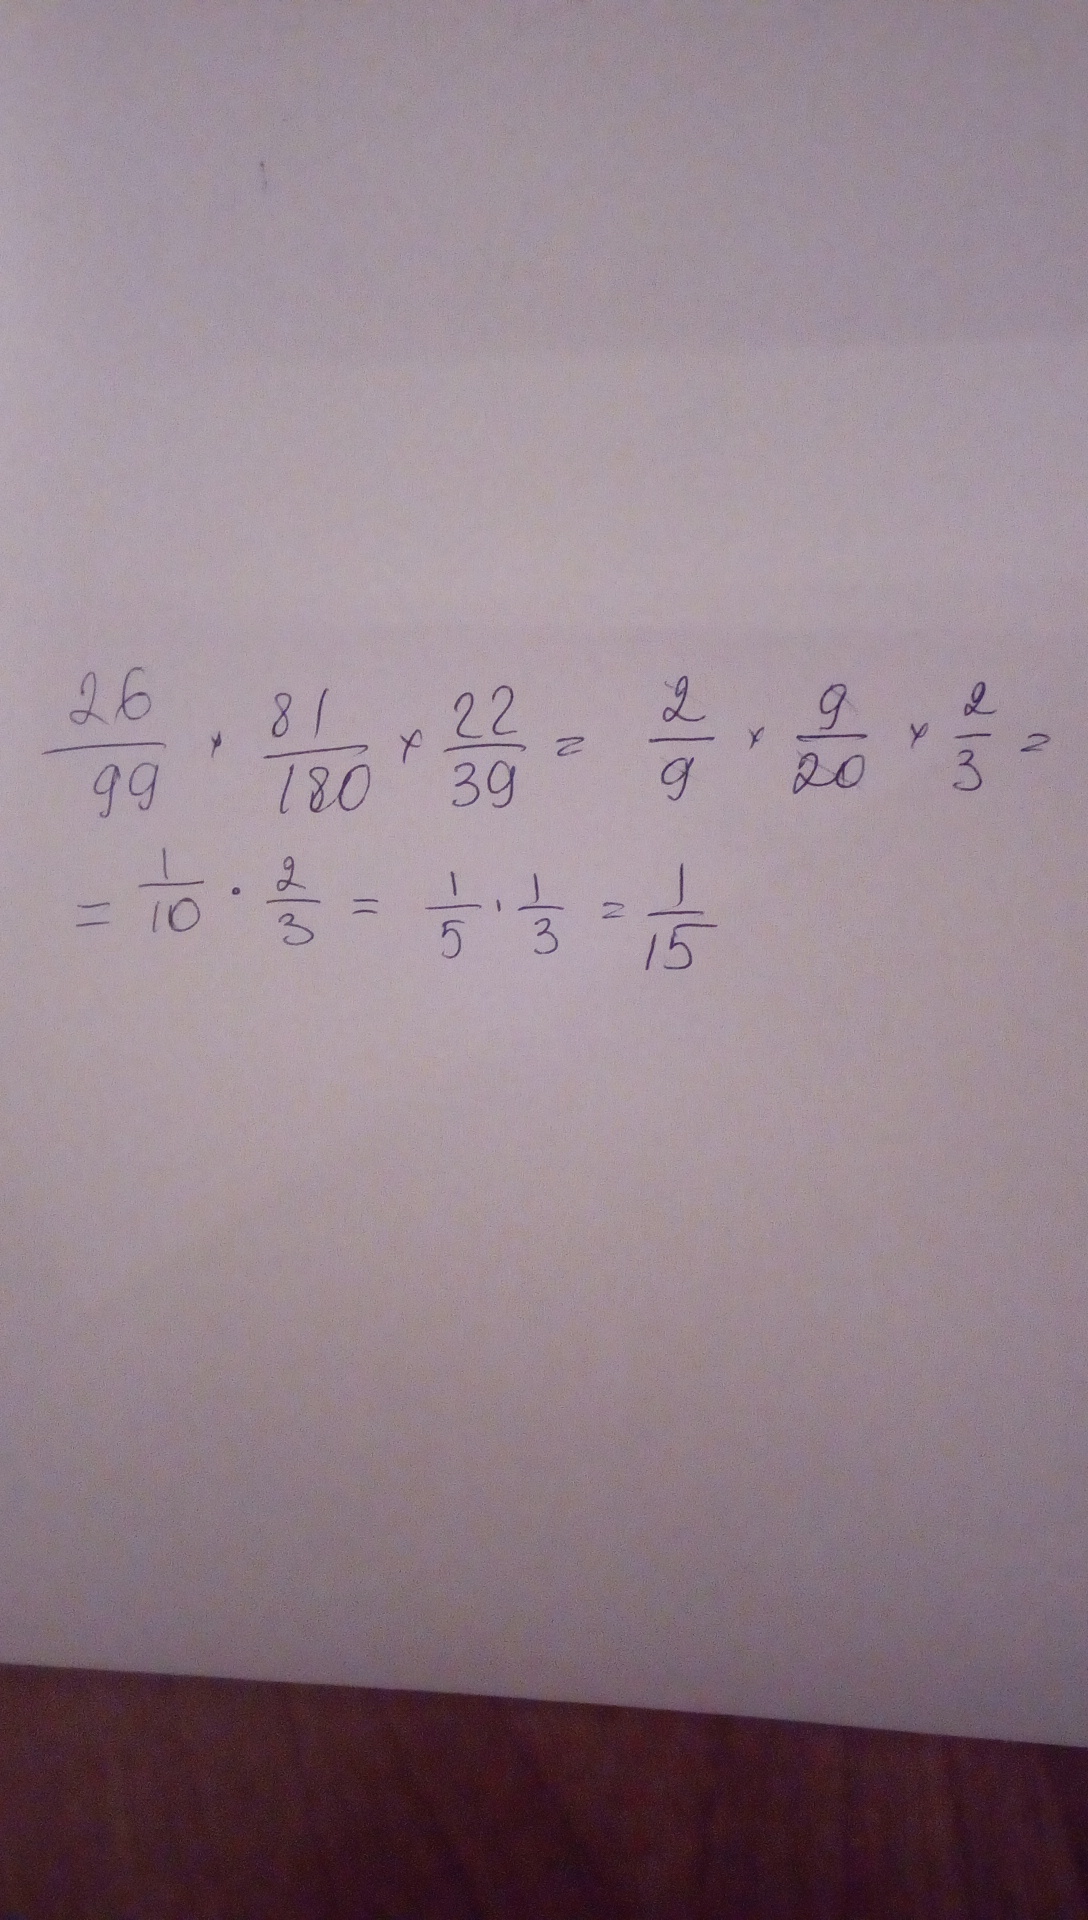 26/99 × 81/180 × 22/39 = 2/9 × 9/20 × 2/3 =
= 1/10 · 2/3 = 1/5 · 1/3 = 1/15